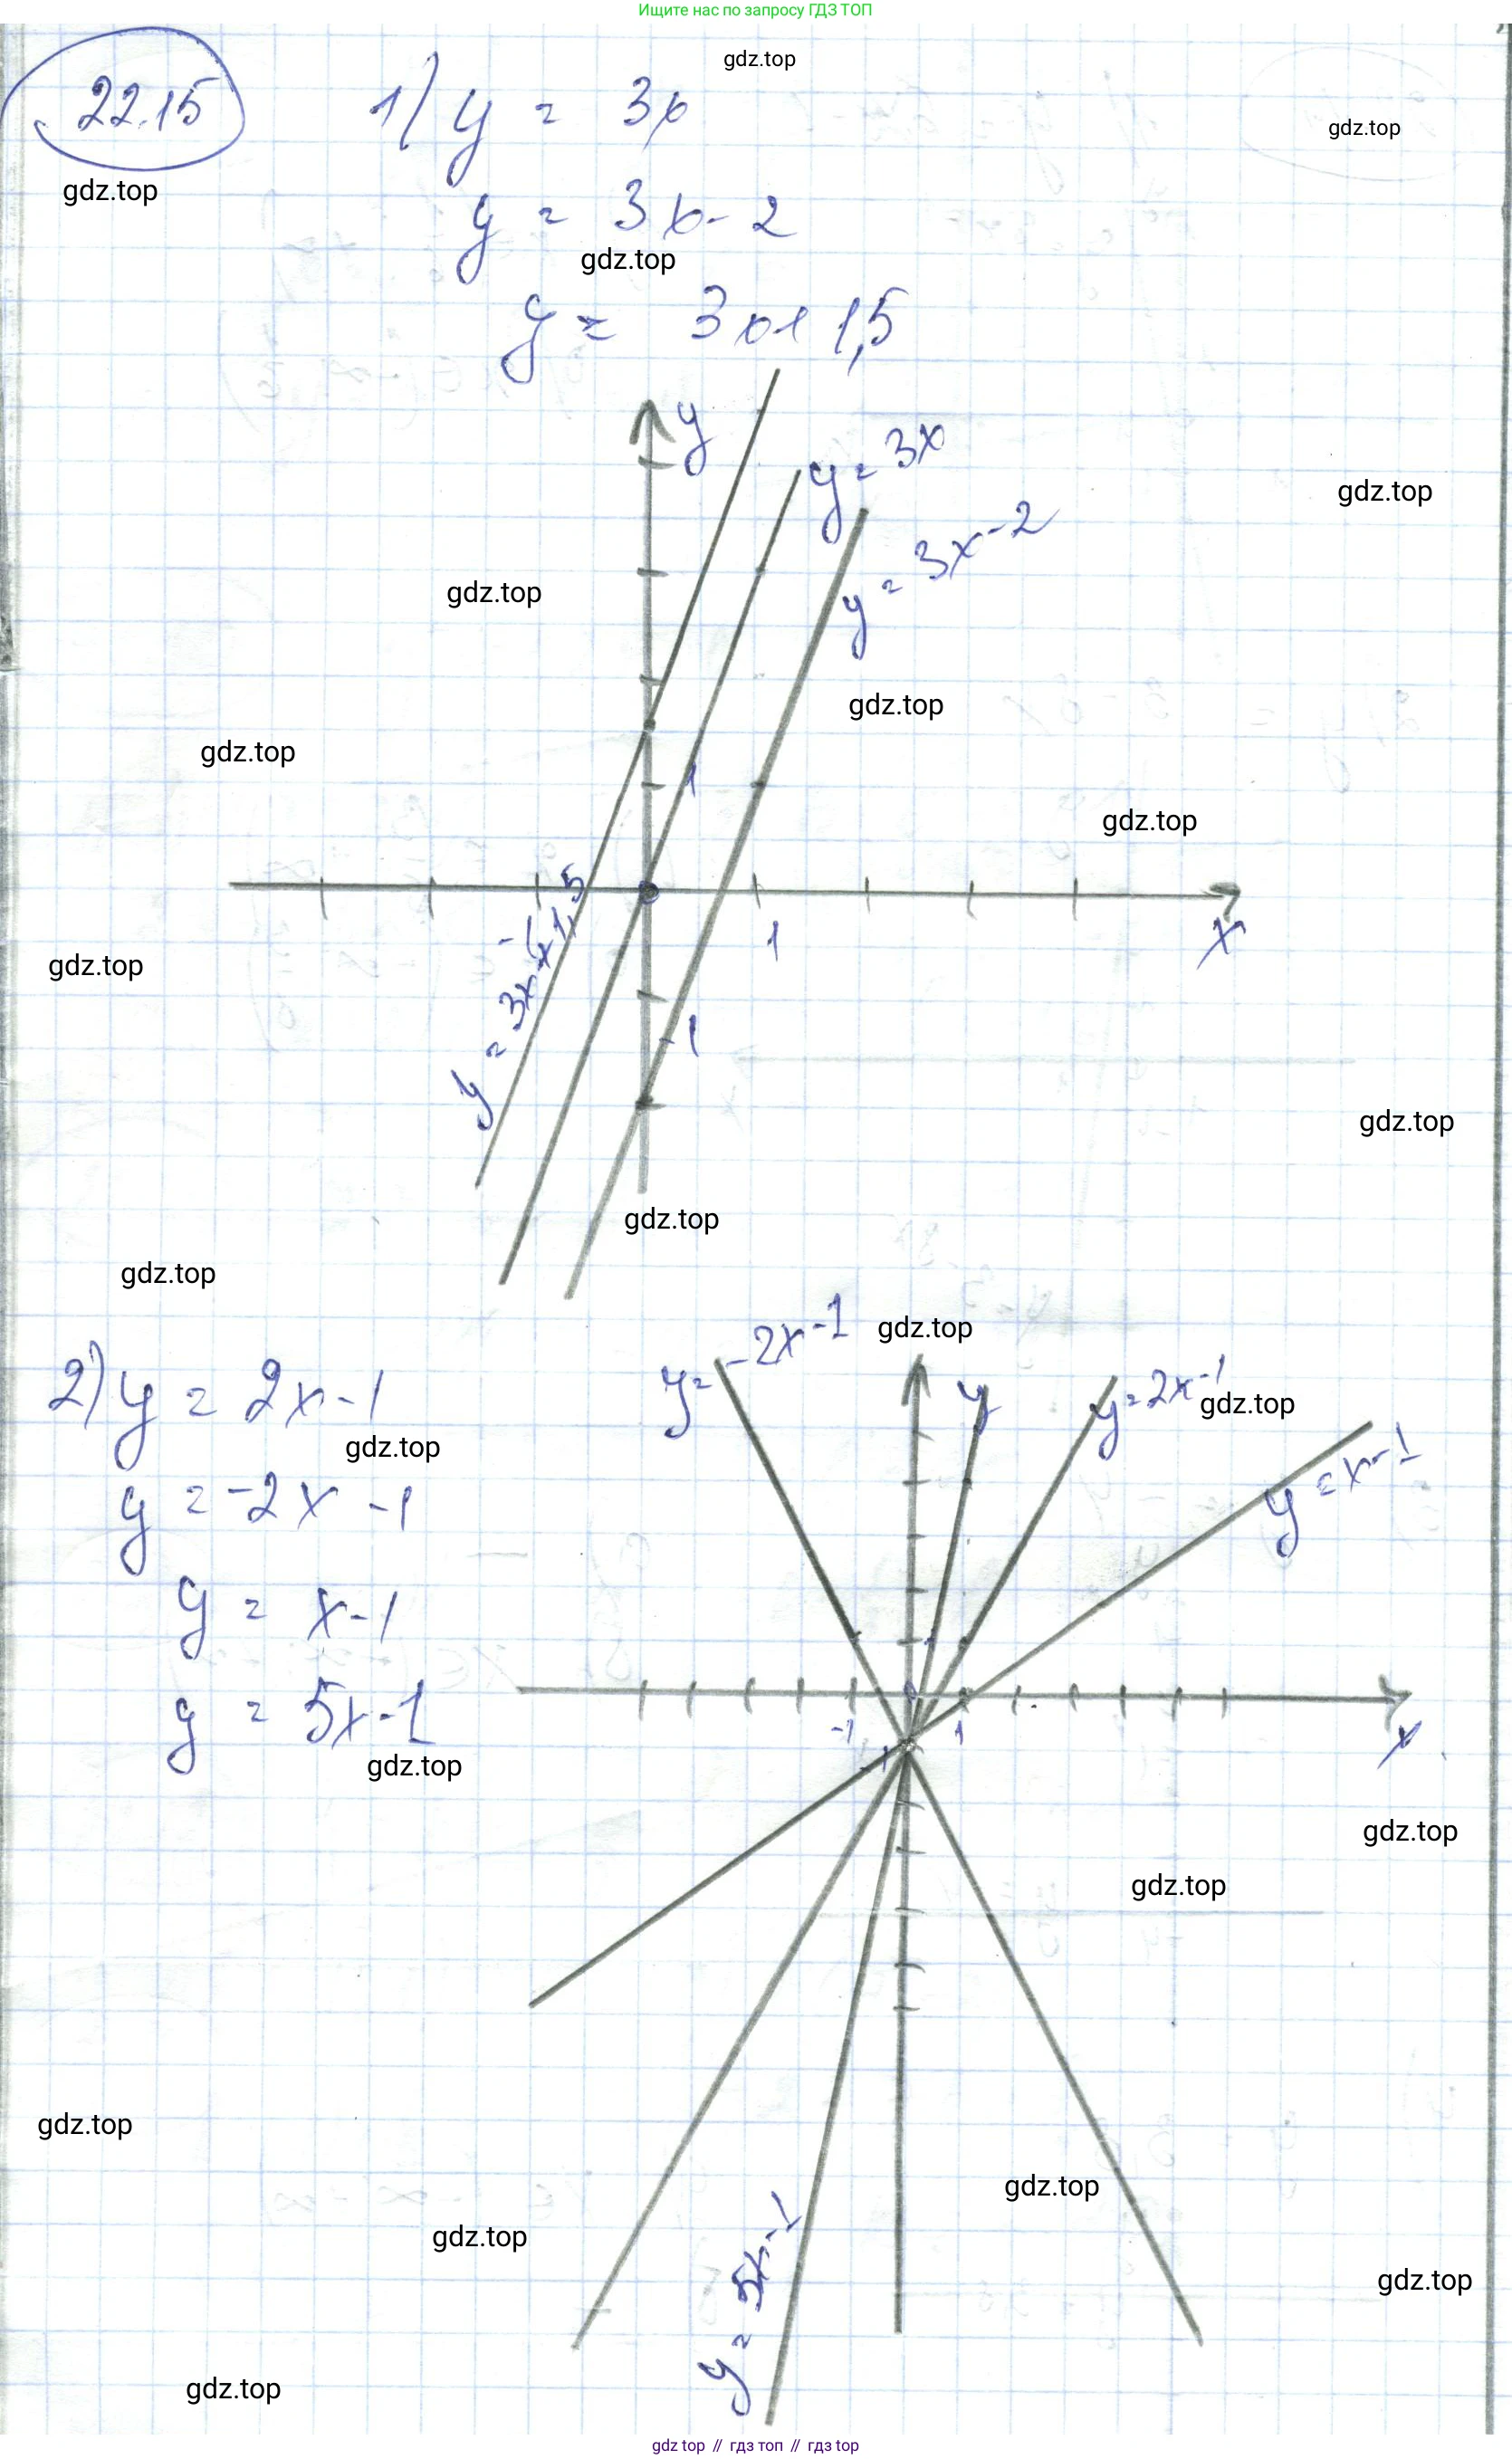 Ищите нас по запросу ГДЗ ТОП
gdz.top
22.15
1) y = 3x
gdz.top
gdz.top
y = 3x - 2
gdz.top
y = 3x + 1,5
y
y = 3x
gdz.top
y = 3x - 2
gdz.top
gdz.top
gdz.top
1
gdz.top
1
x
gdz.top
-1
y = 3x + 1,5
-1
gdz.top
gdz.top
gdz.top
y = -2x - 1
gdz.top
2) y = 2x - 1
y
y = 2x - 1
gdz.top
gdz.top
y = x - 1
y = -2x - 1
y = x - 1
1
y = 5x - 1
-1
1
x
-1
gdz.top
gdz.top
gdz.top
gdz.top
gdz.top
gdz.top
gdz.top
y = 5x - 1
gdz.top
gdz top // гдз топ // гдз top